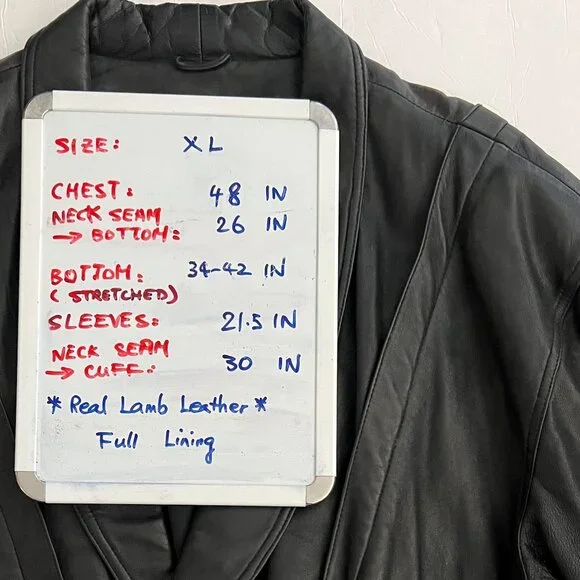 SIZE: XL
CHEST: 48 IN
NECK SEAM
→ BOTTOM: 26 IN
BOTTOM: 34-42 IN
(STRETCHED)
SLEEVES: 21.5 IN
NECK SEAM
→ CUFF: 30 IN
* Real Lamb Leather *
Full Lining